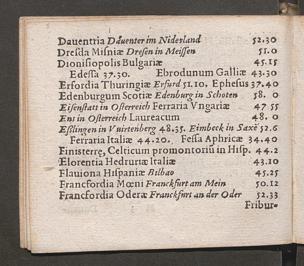 Dauentria Dauenter im Niderland 52.30
Dresda Misniæ Dresen in Meissen 51.0
Dionisiopolis Bulgariæ 45.15
Edessa 37.30. Ebrodunum Galliæ 43.30
Erfordia Thuringiæ Erfurd 51.10. Ephesus 37.40
Edenburgum Scotiæ Edenburg in Schoten 58. 0
Eisenstatt in Osterreich Ferraria Vngariæ 47 55
Ens in Osterreich Laureacum 48. 0
Esslingen in Vuirtenberg 48.35. Eimbeck in Saxē 52.6
Ferraria Italiæ 44.20. Fessa Aphricæ 34.40
Finisterre, Celticum promontoriū in Hisp. 44.2
Florentia Hedruriæ Italiæ 43.10
Flauiona Hispaniæ Bilbao 45.25
Francfordia Mœni Franckfurt am Mein 50.12
Francfordia Oderæ Franckfurt an der Oder 52.33
Fribur-